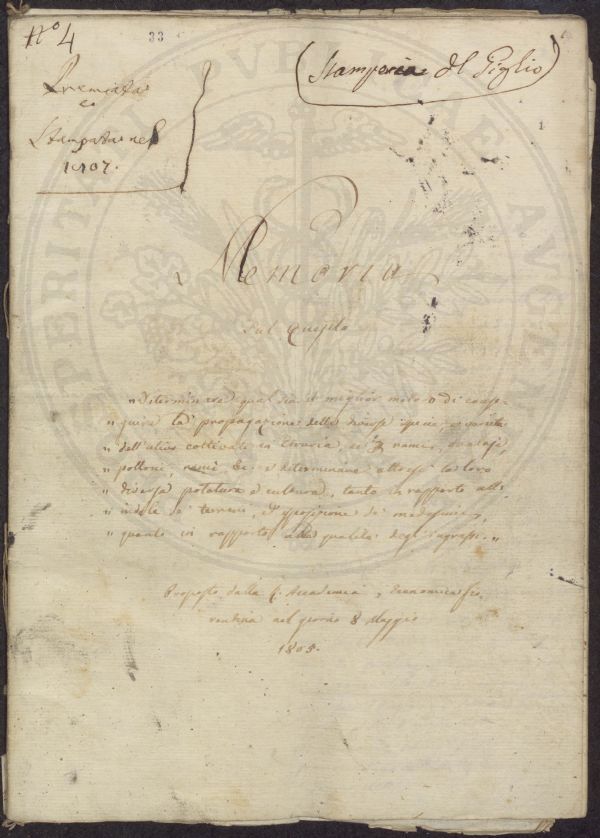 N.º 4
33
(Stamperia Del Giglio)
Premiata
e
Stampata nel
1807.
1
PROSPERITATI PUBLICAE AUGENDAE
Memoria
Sul Quesito
„ Determinare qual sia il miglior metodo di conse-
„ guire la propagazione delle diverse specie, e varietà
„ dell'ulivo coltivato in Etruria, se rami,
„ polloni, semi &c. e determinare altresì la loro
„ diversa potatura e cultura, tanto in rapporto all'
„ indole de' terreni, e esposizione de' medesimi,
„ quanto in rapporto alla qualità degl'ingrassi. „
Proposto dalla R. Accademia Economica Fio
rentina nel giorno 8 Maggio
1805.